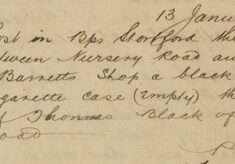 13 Janu
ost in Bps Stortford the
ween Nursery Road an
Barretts Shop a black
garette case (empty) th
Thomas Black of
oad